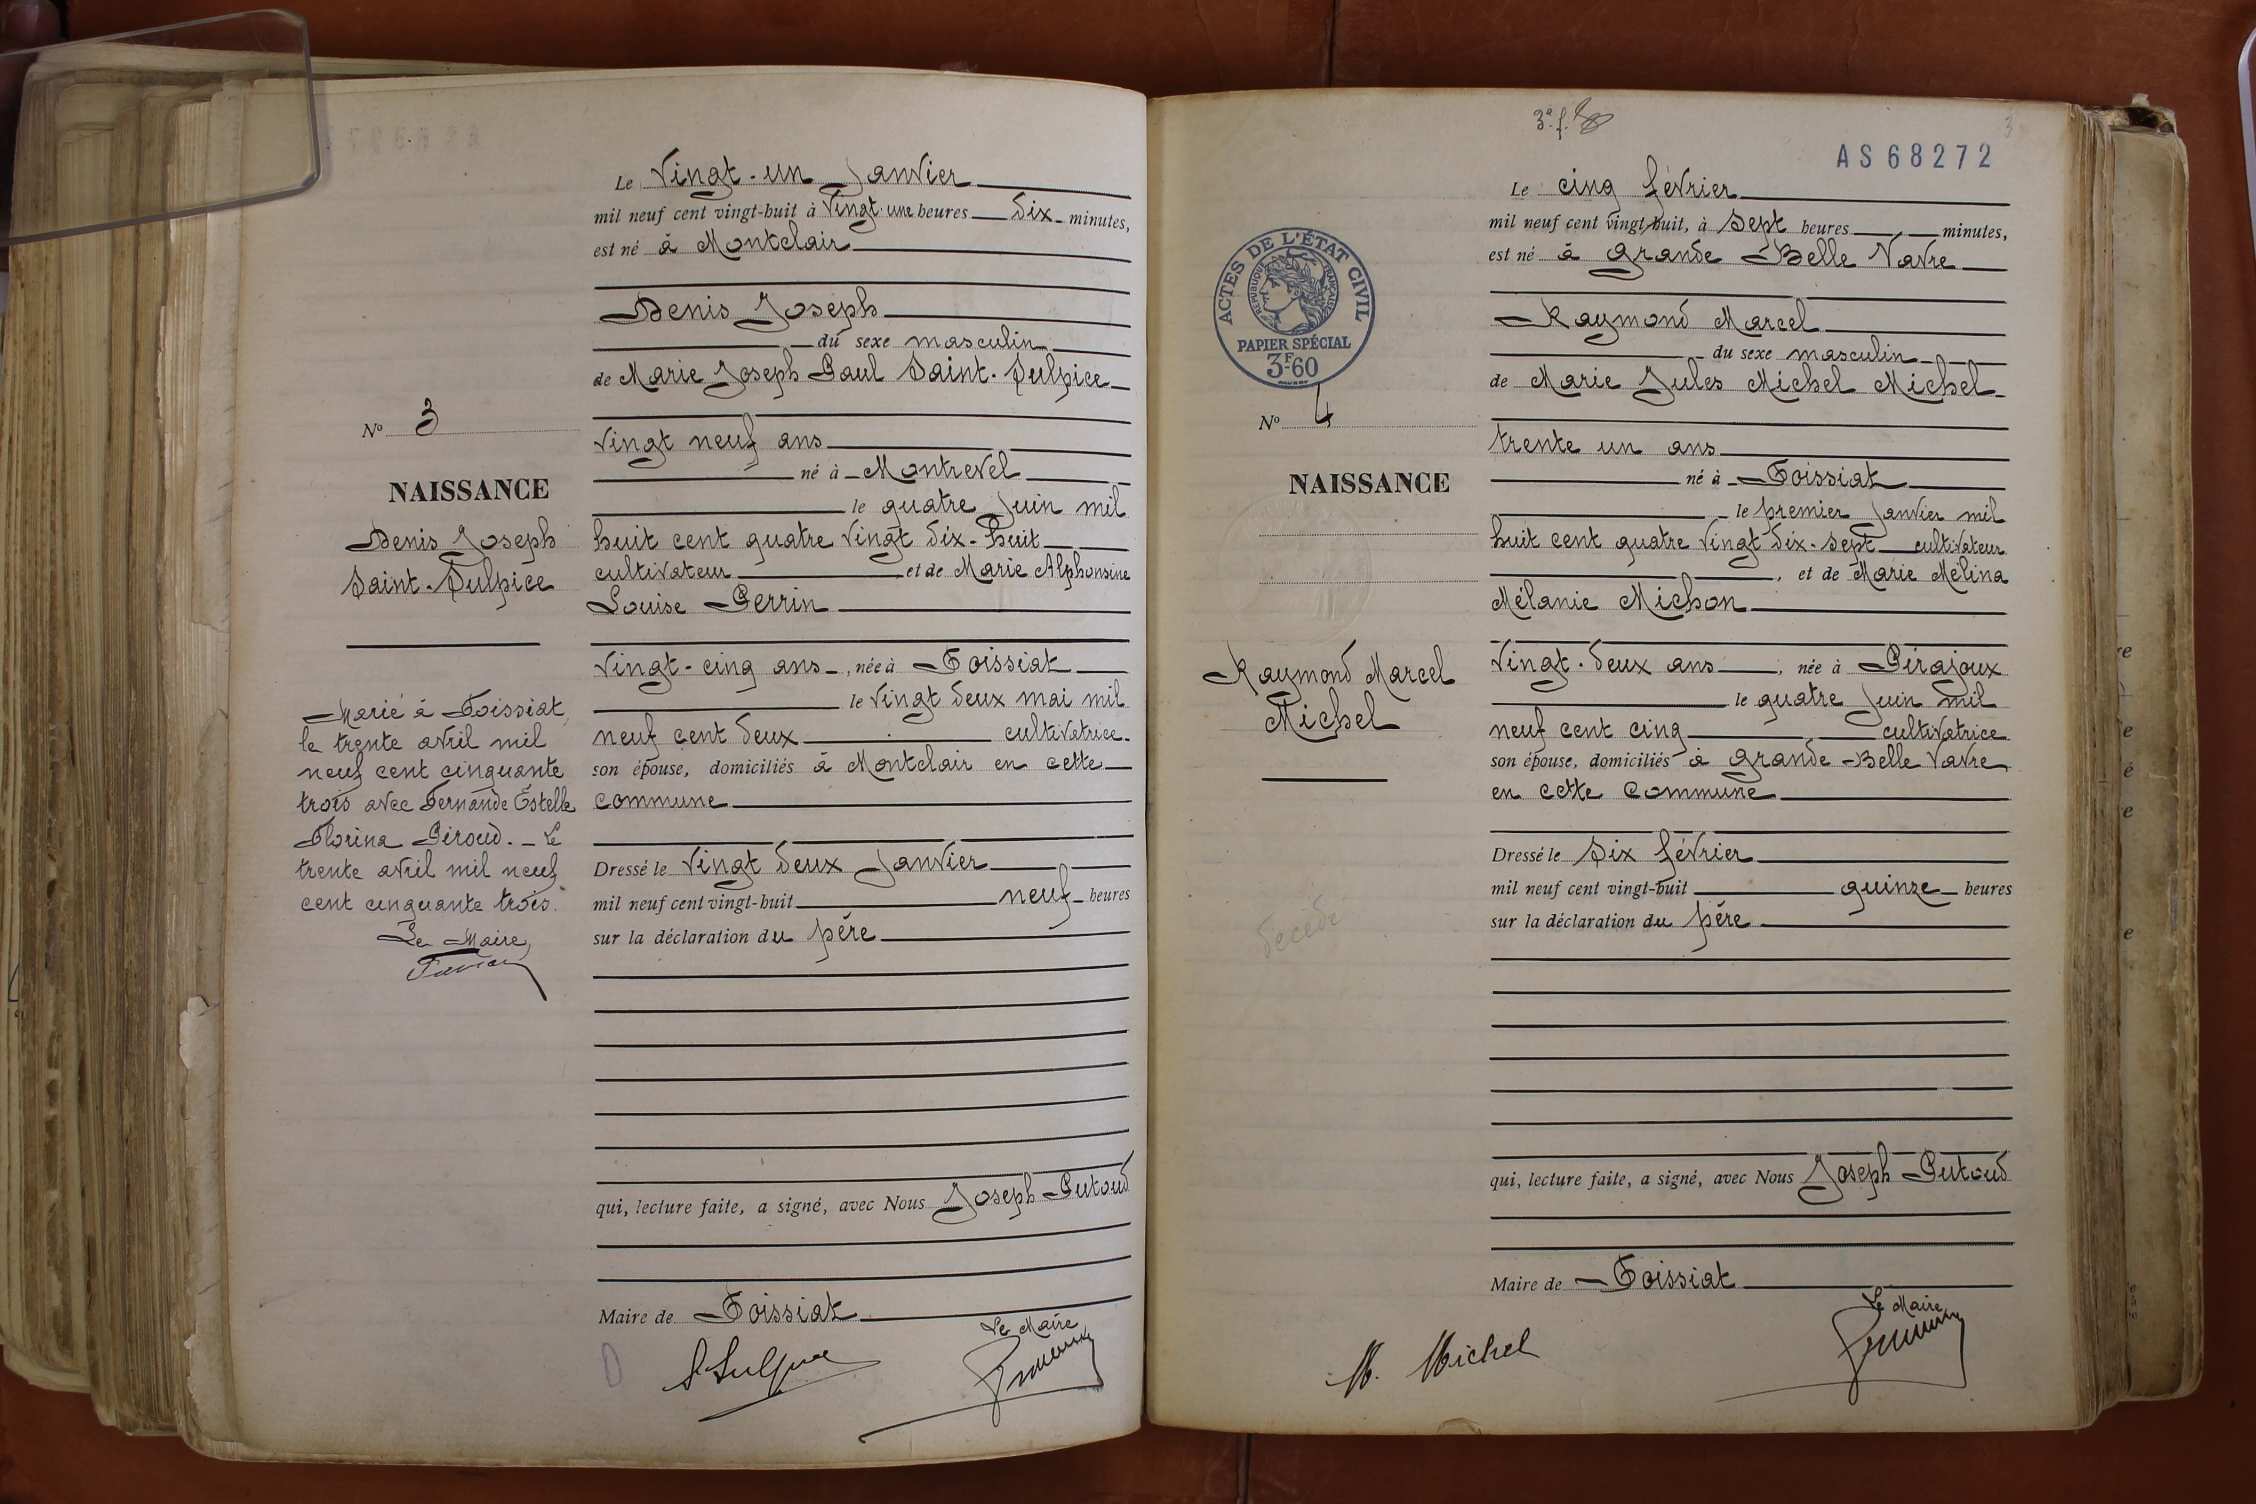 Le Vingt-un Janvier
mil neuf cent vingt-huit à Vingt-une heures dix minutes,
est né à Montclair
Denis Joseph
du sexe masculin
de Marie Joseph Paul Saint-Sulpice
Vingt neuf ans
né à Montrevel
le quatre Juin mil
huit cent quatre Vingt dix-huit
cultivateur et de Marie Alphonsine
Louise Perrin
Vingt-cinq ans, née à Foissiat
le Vingt deux mai mil
neuf cent deux cultivatrice
son épouse, domiciliés à Montclair en cette
commune
Dressé le Vingt deux Janvier
mil neuf cent vingt-huit neuf heures
sur la déclaration du père
qui, lecture faite, a signé, avec Nous Joseph Putoud
Maire de Foissiat
Le Maire
S Sulpice
No 3
NAISSANCE
Denis Joseph
Saint-Sulpice
Marié à Foissiat,
le trente avril mil
neuf cent cinquante
trois avec Fernande Estelle
Florina Piroud. - Le
trente avril mil neuf
cent cinquante trois.
Le Maire,
3e f.
AS68272
3
Le cinq février
mil neuf cent vingt-huit, à Sept heures minutes,
est né à Grande Belle Vavre
Raymond Marcel
du sexe masculin
de Marie Jules Michel Michel
trente un ans
né à Foissiat
le premier Janvier mil
huit cent quatre Vingt dix-sept cultivateur
, et de Marie Mélina
Mélanie Michon
Vingt-deux ans, née à Pirajoux
le quatre Juin mil
neuf cent cinq cultivatrice
son épouse, domiciliés à Grande-Belle Vavre
en cette Commune
Dressé le Six février
mil neuf cent vingt-huit quinze heures
sur la déclaration du père
qui, lecture faite, a signé, avec Nous Joseph Putoud
Maire de Foissiat
Le Maire
M. Michel
ACTES DE L'ÉTAT CIVIL
RÉPUBLIQUE FRANÇAISE
PAPIER SPÉCIAL
3F60
No 4
NAISSANCE
Raymond Marcel
Michel
décédé